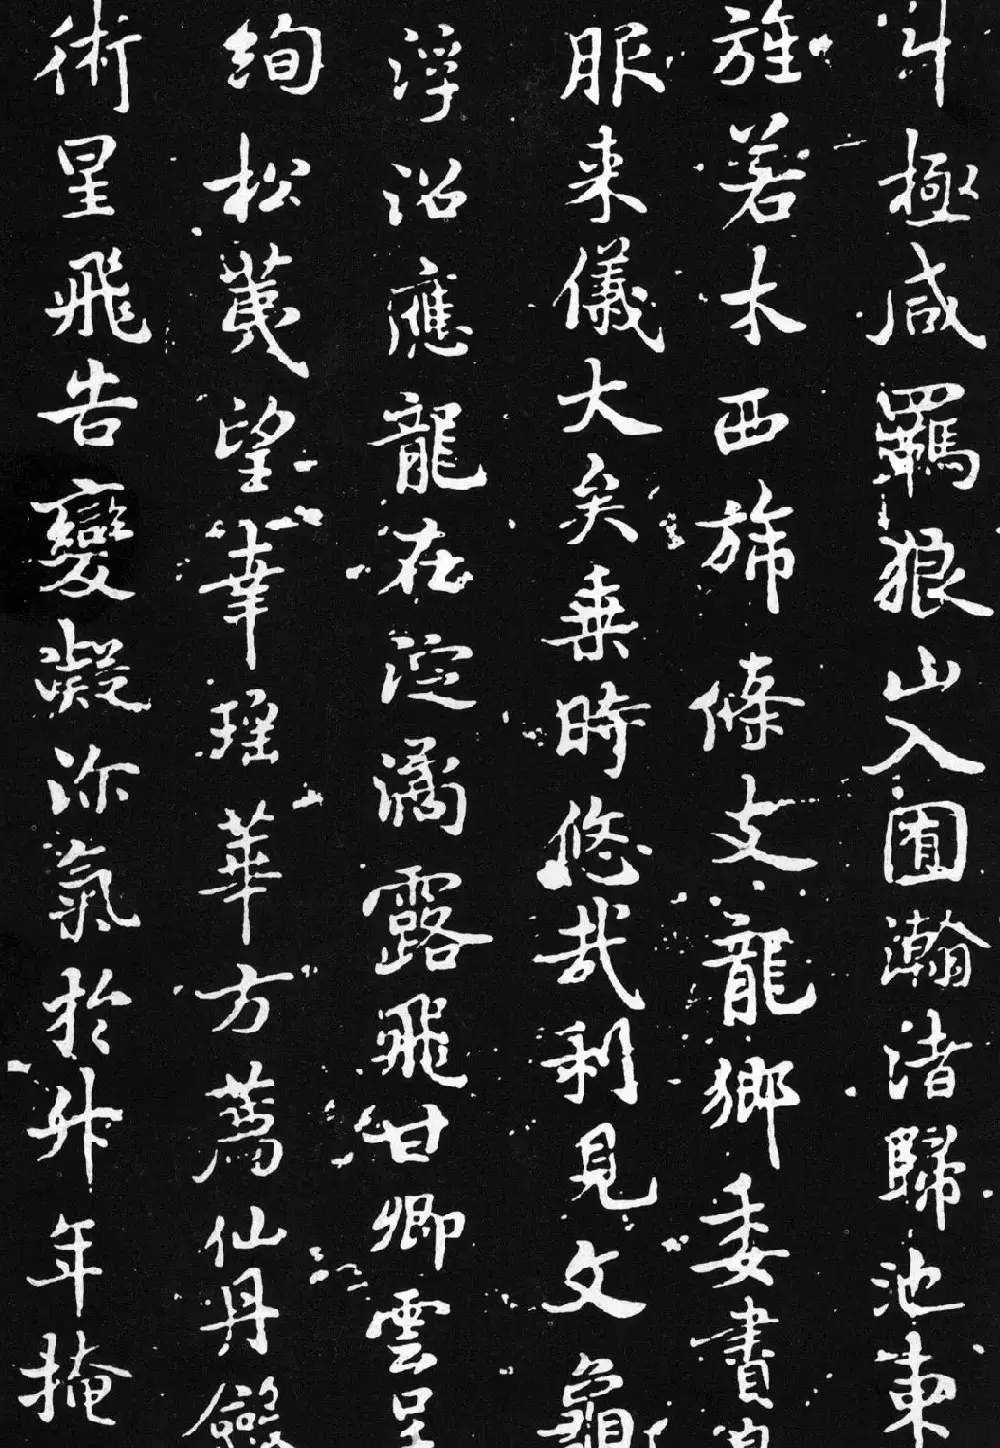 斗極咸羈狼山入囿瀚渚歸池東
旌若木西旆條支龍鄉委書
服来儀大矣乘時悠哉利見文龜
浮沼應龍在淀潏露飛甘卿雲呈
絢松蓂望幸瑤華方薦仙丹
術星飛告變凝沴氣於升年掩